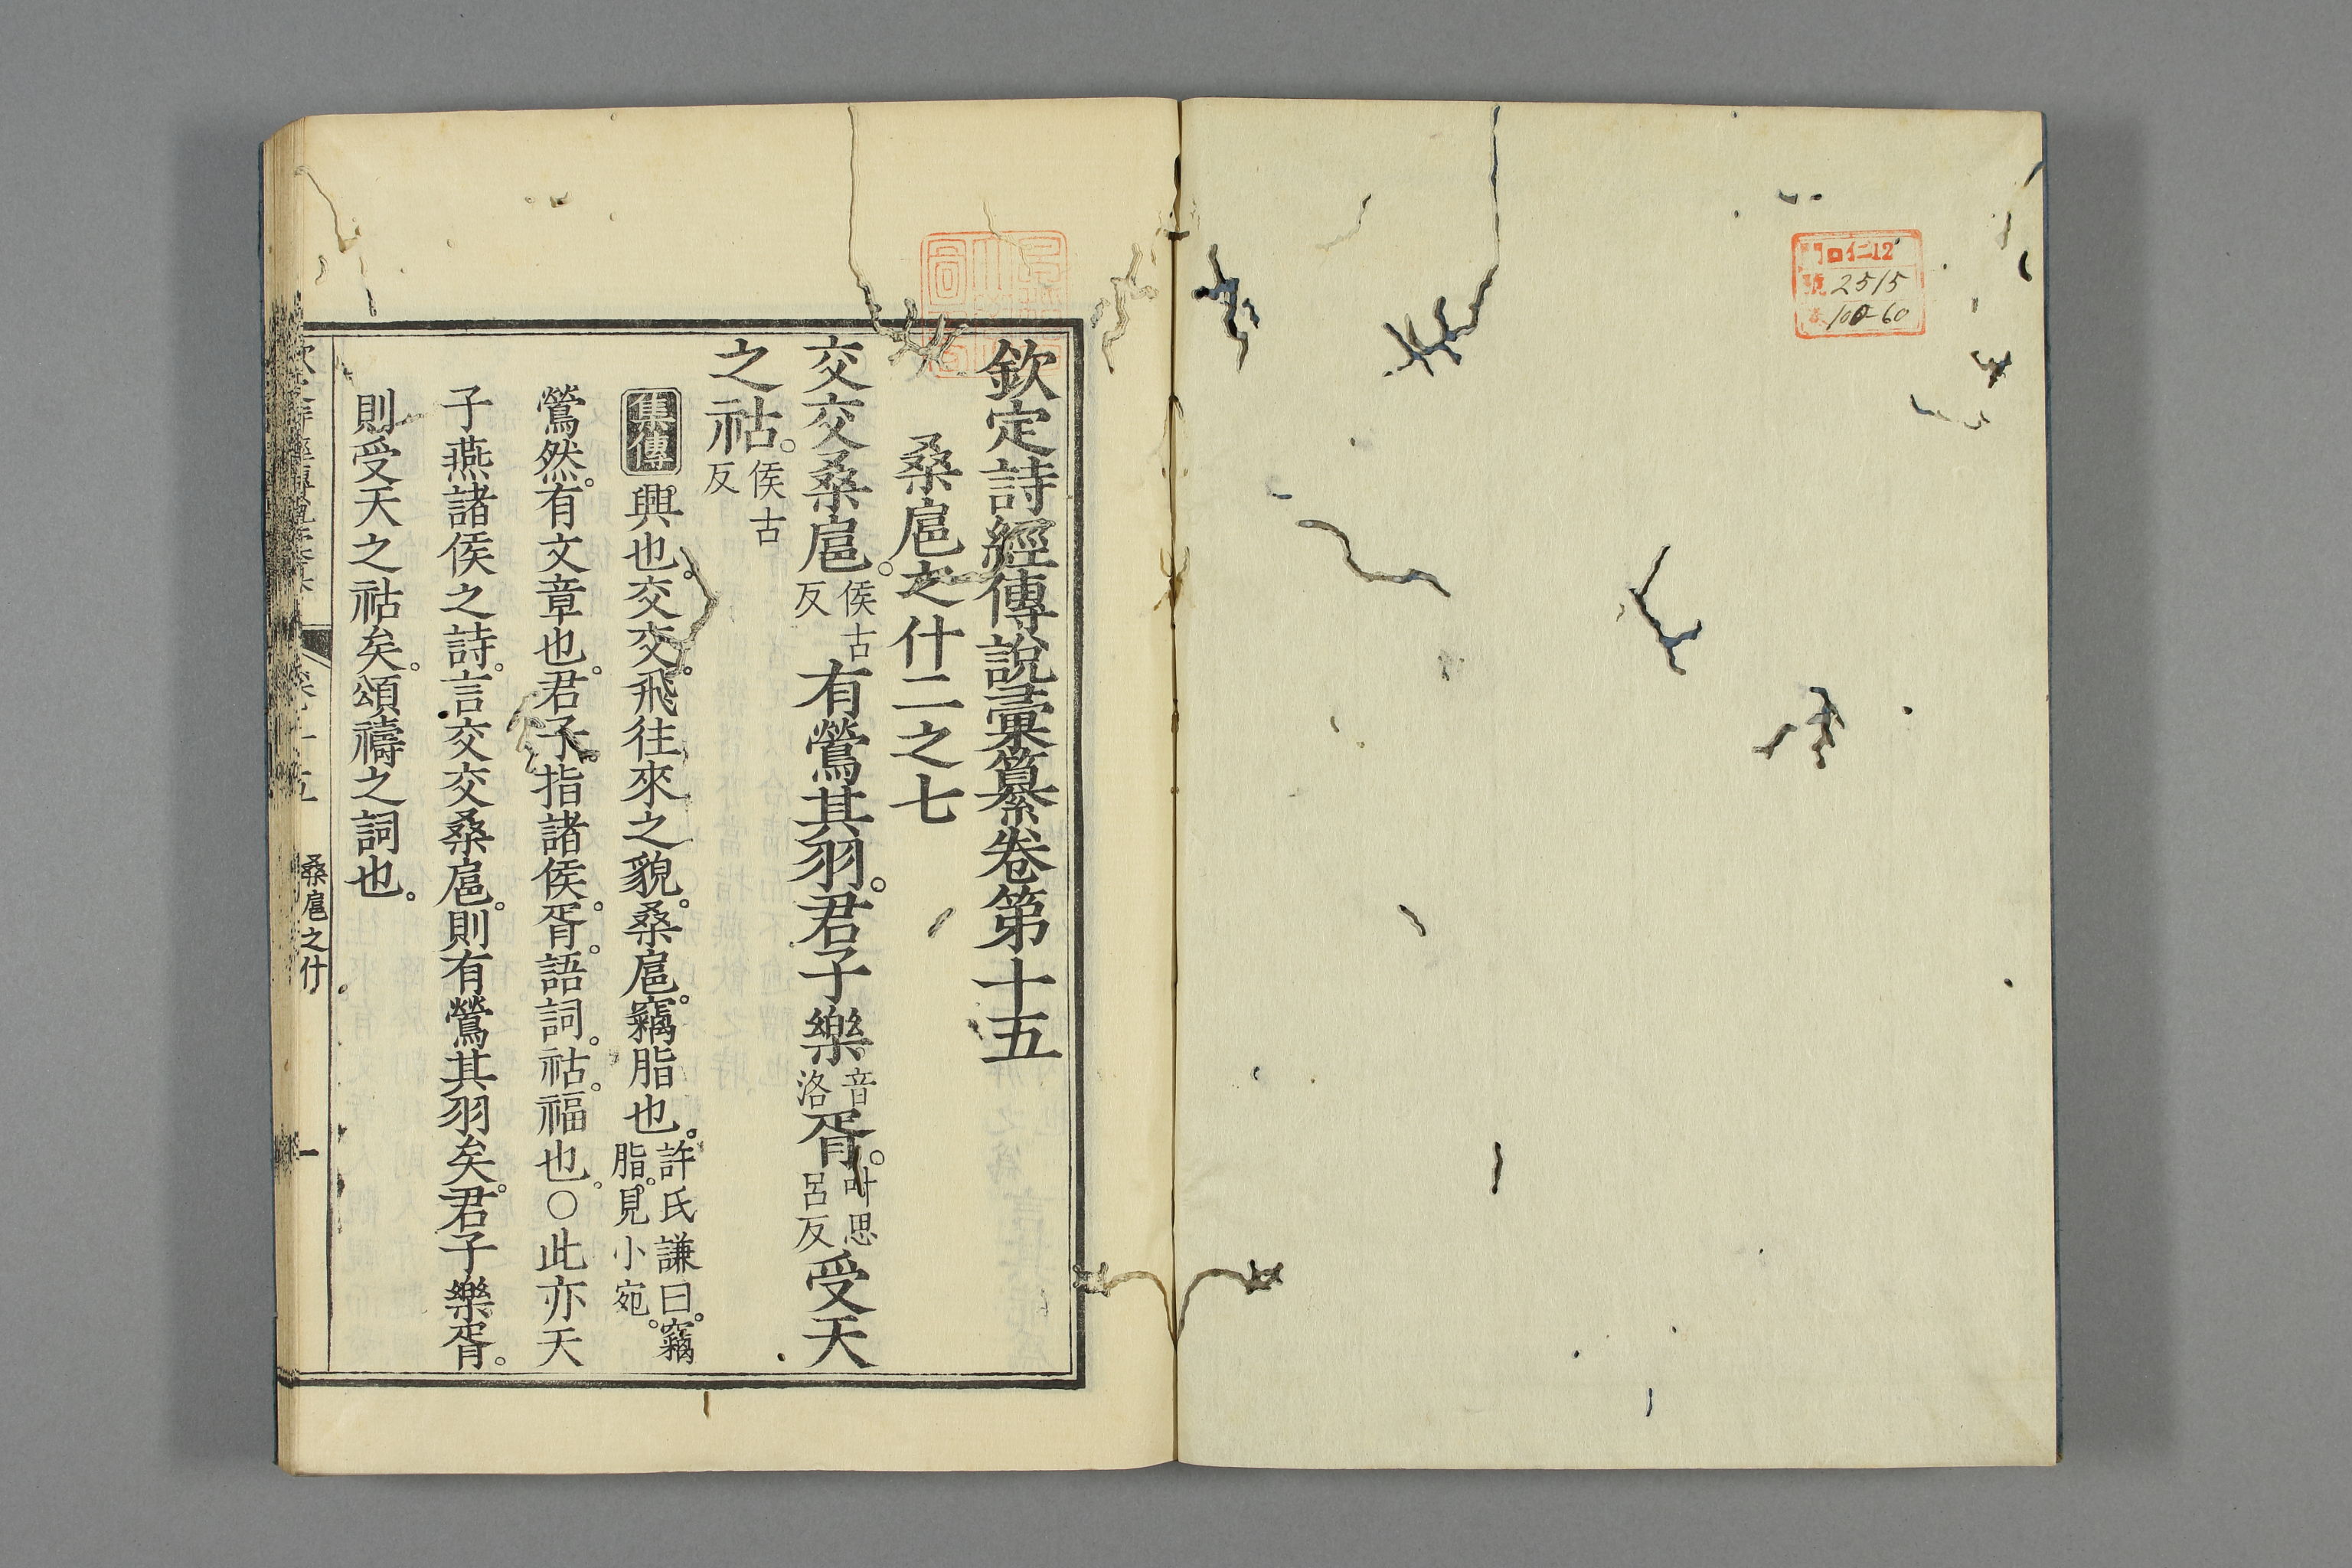 口仁12
號 2515
100-60
欽定詩經傳說彙纂卷第十五
桑扈之什二之七
交交桑扈。侯古反有鶯其羽。君子樂音洛胥。叶思呂反受天
之祜。侯古反
集傳 興也。交交。飛往來之貌。桑扈。竊脂也。許氏謙曰。竊脂。見小宛。
鶯然。有文章也。君子。指諸侯。胥。語詞。祜。福也。○此亦天
子燕諸侯之詩。言交交桑扈。則有鶯其羽矣。君子樂胥。
則受天之祜矣。頌禱之詞也。
桑扈之什
一